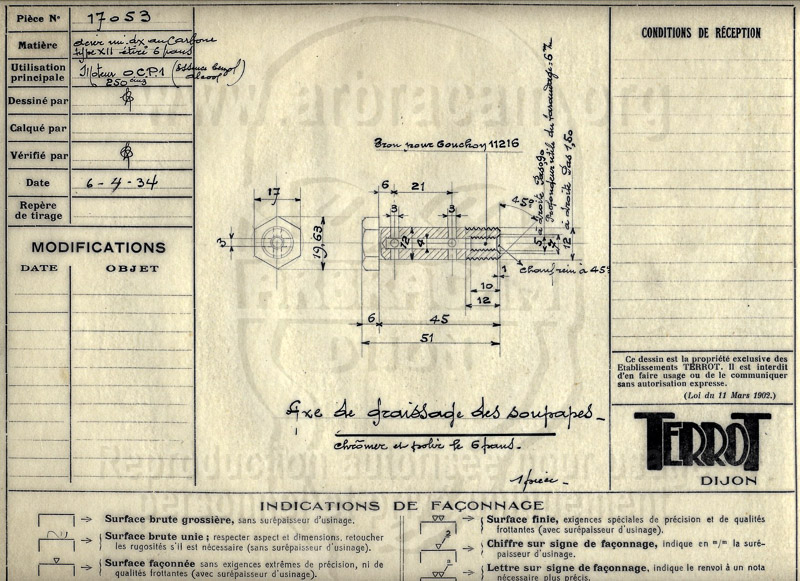 Pièce N° 17053
Matière acier mi.dx au Carbone
type XII étiré 6 pans
Utilisation principale Moteur O.C.P.1 (Essence benzol
250 cm3 alcool)
Dessiné par
Calqué par
Vérifié par
Date 6-4-34
Repère de tirage
MODIFICATIONS
DATE OBJET
CONDITIONS DE RÉCEPTION
www. .org
Trou pour Bouchon 11216
6 21
17
3 3
45°
3
19,63
12
4
5 à droite Pas 0,90
Profondeur utile du taraudage: 6
7
12 à droite Pas 1,50
chanfrein à 45°
1
10
12
6 45
51
Axe de graissage des soupapes_
chrômer et polir le 6 pans._
1 pièce._
Ce dessin est la propriété exclusive des
Etablissements TERROT. Il est interdit
d'en faire usage ou de le communiquer
sans autorisation expresse.
(Loi du 11 Mars 1902.)
TERROT
DIJON
Reproduction autorisée pour
INDICATIONS DE FAÇONNAGE
Surface brute grossière, sans surépaisseur d'usinage.
Surface brute unie ; respecter aspect et dimensions, retoucher
les rugosités s'il est nécessaire (sans surépaisseur d'usinage).
Surface façonnée sans exigences extrêmes de précision, ni de
qualités frottantes (avec surépaisseur d'usinage).
Surface finie, exigences spéciales de précision et de qualités
frottantes (avec surépaisseur d'usinage).
Chiffre sur signe de façonnage, indique en m/m la suré-
paisseur d'usinage.
Lettre sur signe de façonnage, indique le renvoi à un nota
nécessaire plus précis.